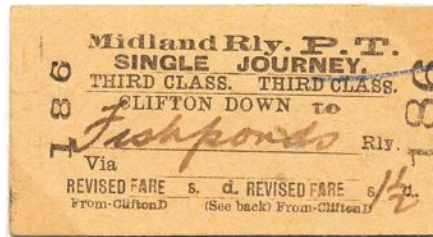 Midland Rly. P. T.
SINGLE JOURNEY.
THIRD CLASS. THIRD CLASS.
CLIFTON DOWN to
Fishponds Rly.
Via
REVISED FARE s. d. REVISED FARE s. d.
1½
From-Clifton D (See back) From-Clifton D
186
186